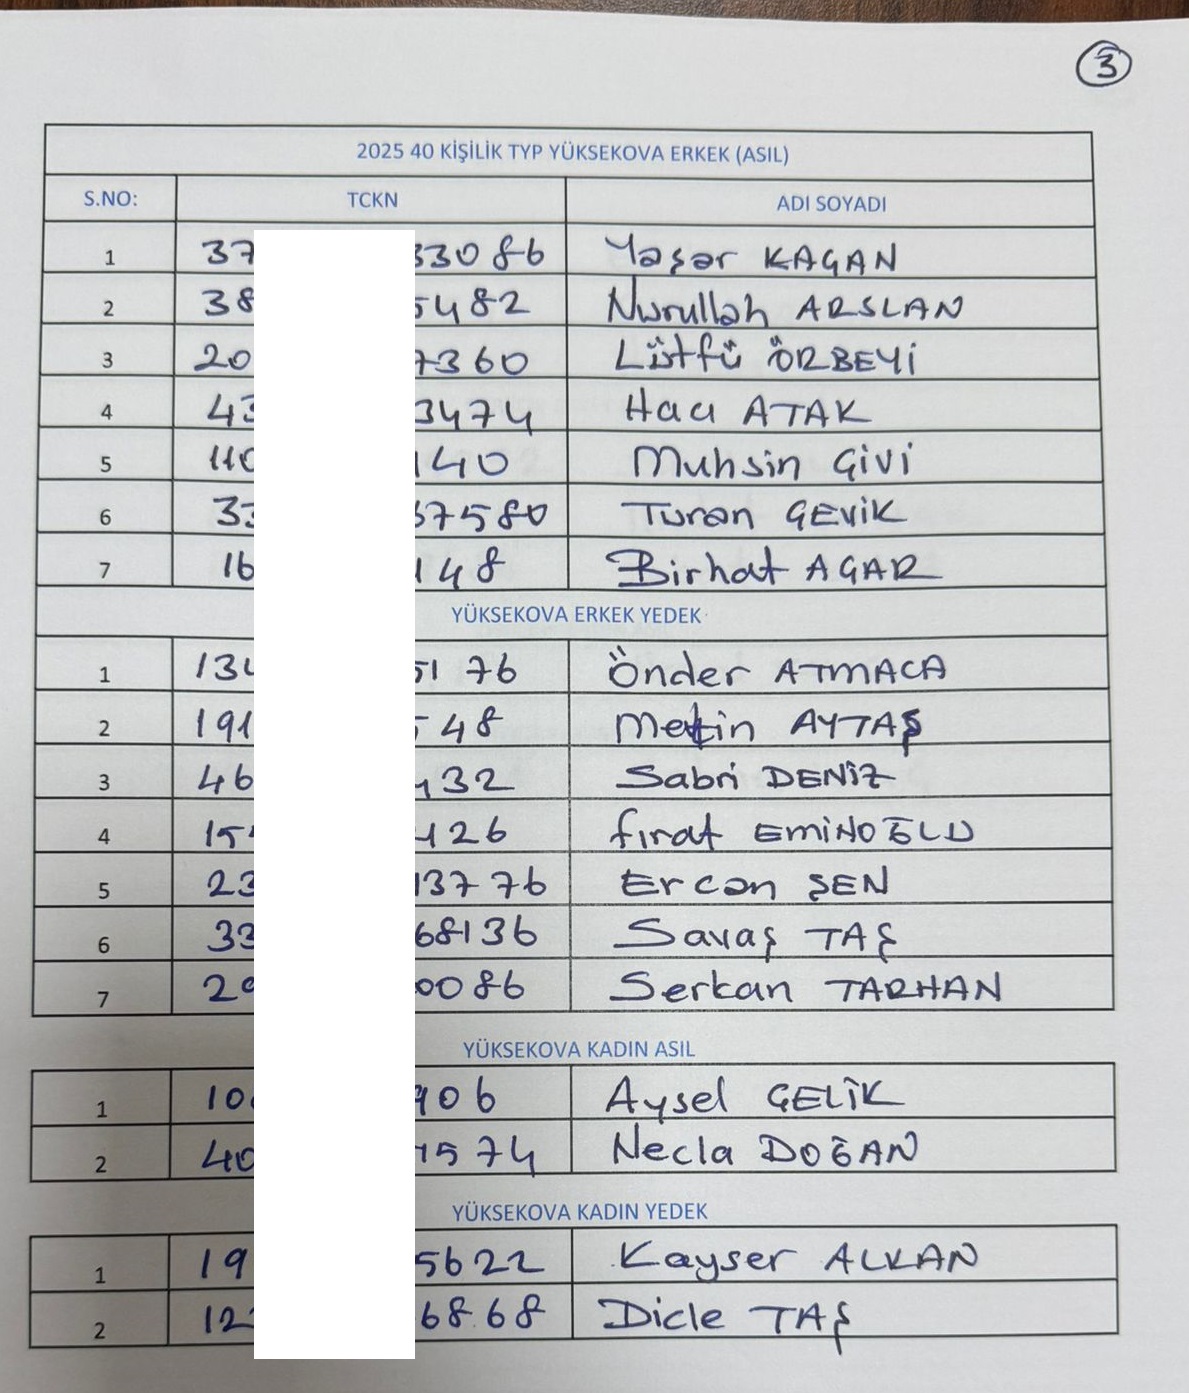 3
2025 40 KİŞİLİK TYP YÜKSEKOVA ERKEK (ASIL)
S.NO: TCKN ADI SOYADI
1 37 33086 Yaşar KAÇAN
2 38 5482 Nurullah ARSLAN
3 20 7360 Lütfü ÖRBEYİ
4 43 3474 Hacı ATAK
5 110 140 Muhsin ÇİVİ
6 33 37580 Turan ÇEVİK
7 16 148 Birhat AÇAR
YÜKSEKOVA ERKEK YEDEK
1 134 5176 Önder ATMACA
2 191 48 Metin AYTAŞ
3 46 432 Sabri DENİZ
4 15 426 Fırat EMİNOĞLU
5 23 13776 Ercan ŞEN
6 33 68136 Savaş TAŞ
7 29 0086 Serkan TARHAN
YÜKSEKOVA KADIN ASIL
1 10 906 Aysel ÇELİK
2 40 1574 Necla DOĞAN
YÜKSEKOVA KADIN YEDEK
1 19 5622 Kayser ALKAN
2 12 6868 Dicle TAŞ